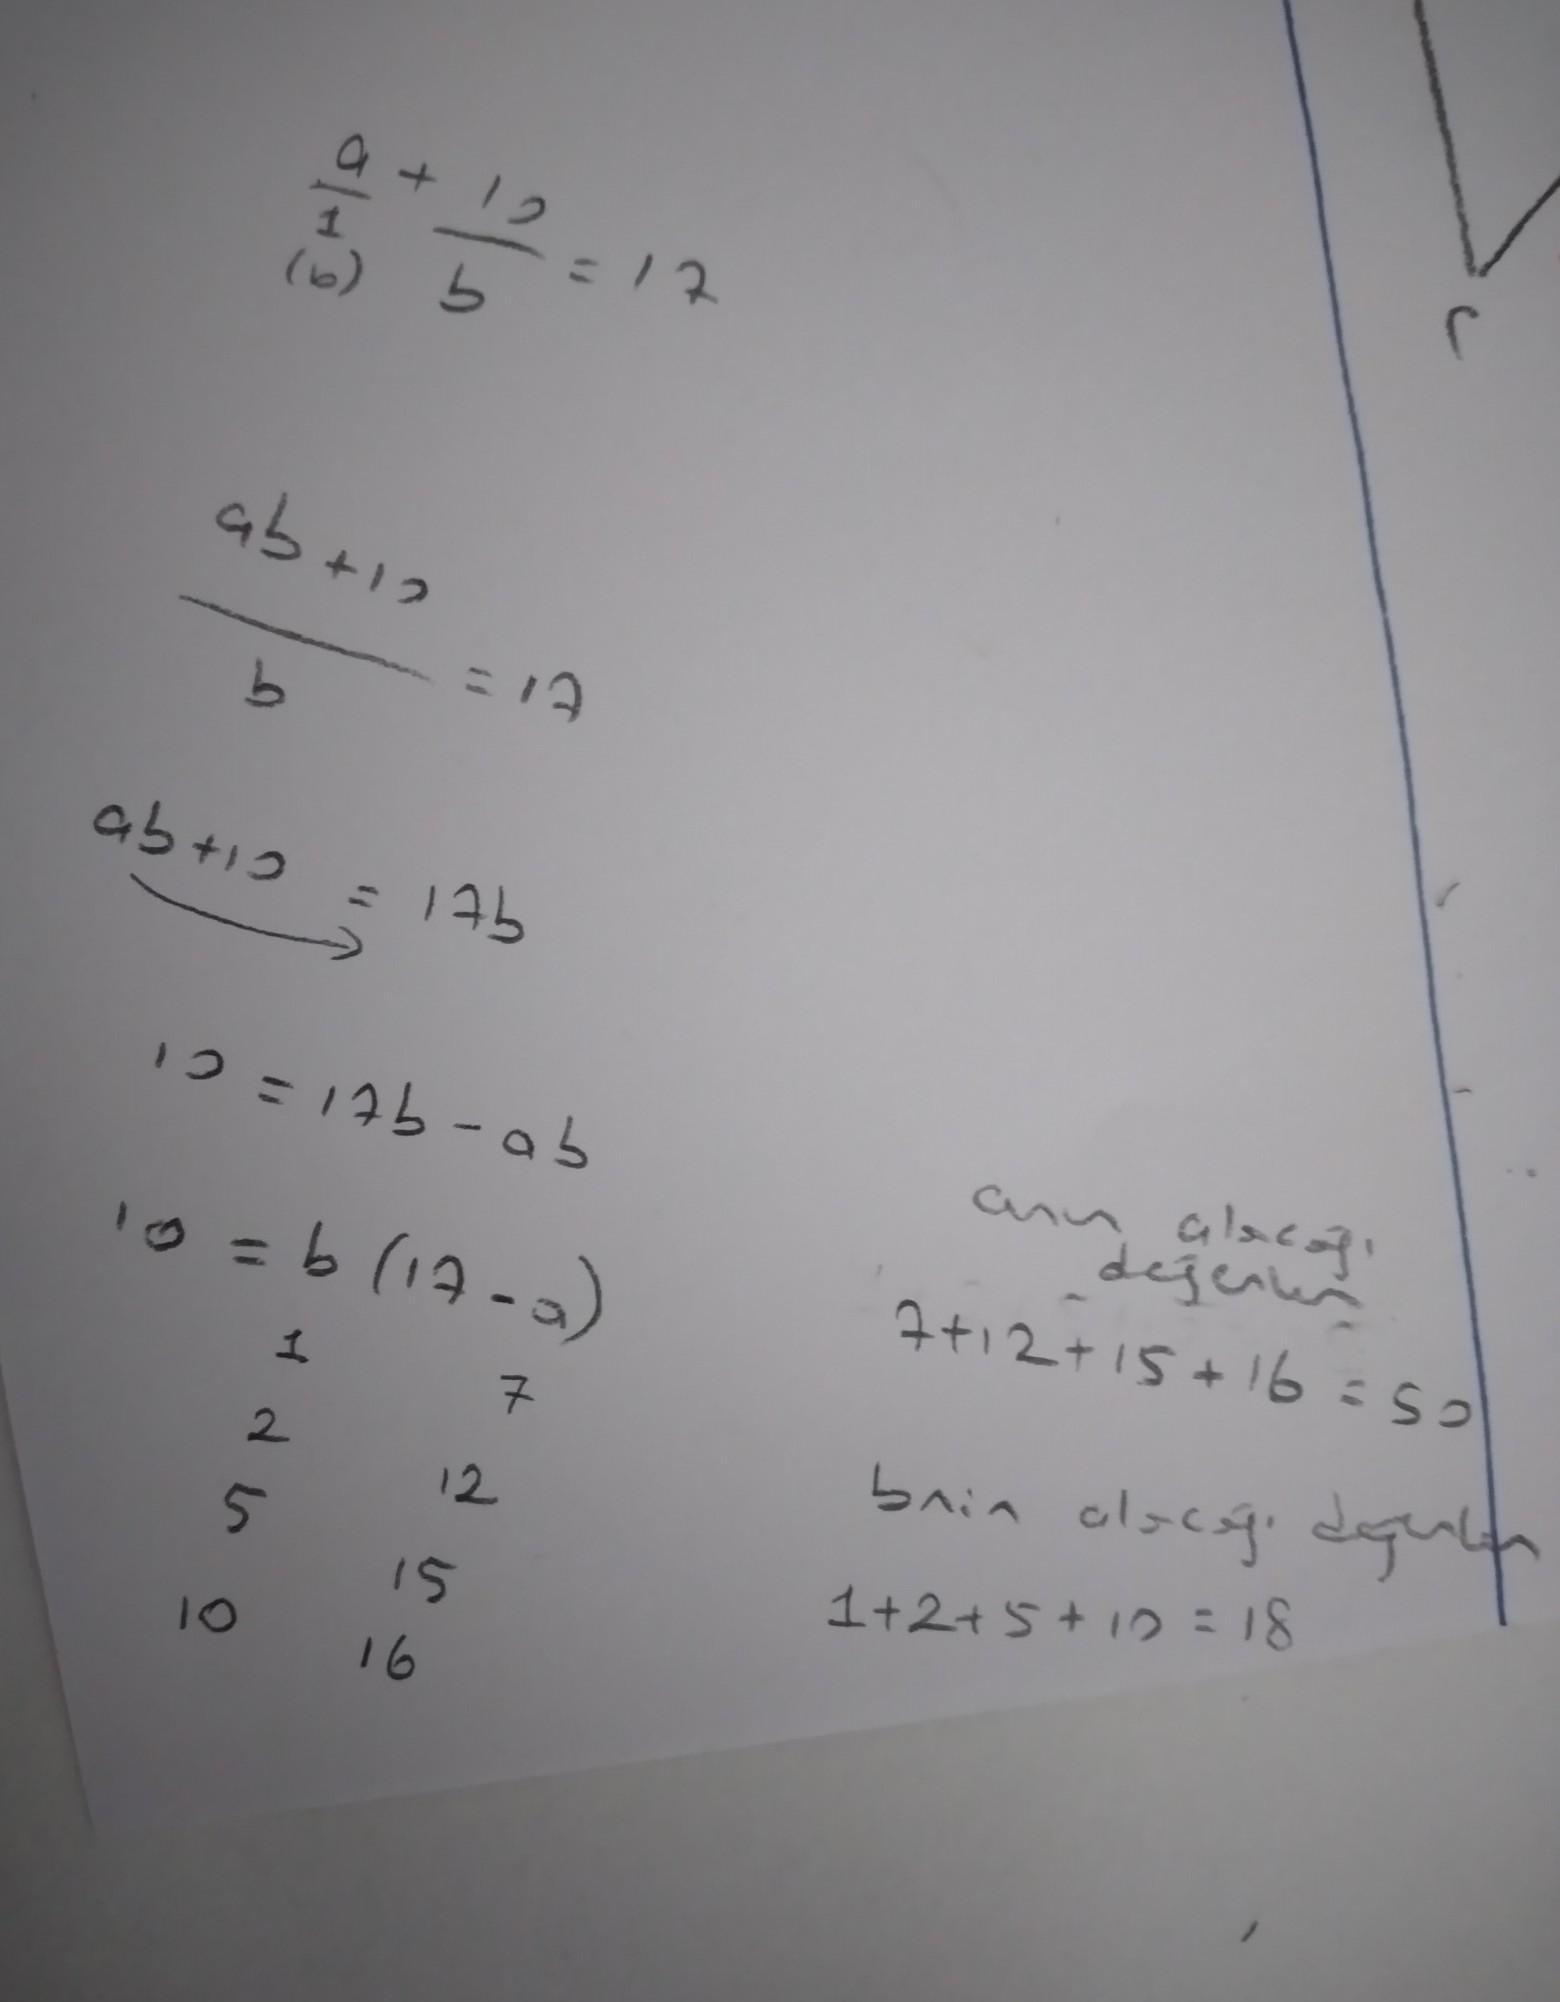 a/1 + 10/b = 17
(b)
ab+10/b = 17
ab+10 = 17b
10 = 17b - ab
10 = b (17 - a)
1 7
2 12
5 15
10 16
anın alacağı
değerler
7+12+15+16 = 50
bnin alacağı değerler
1+2+5+10 = 18